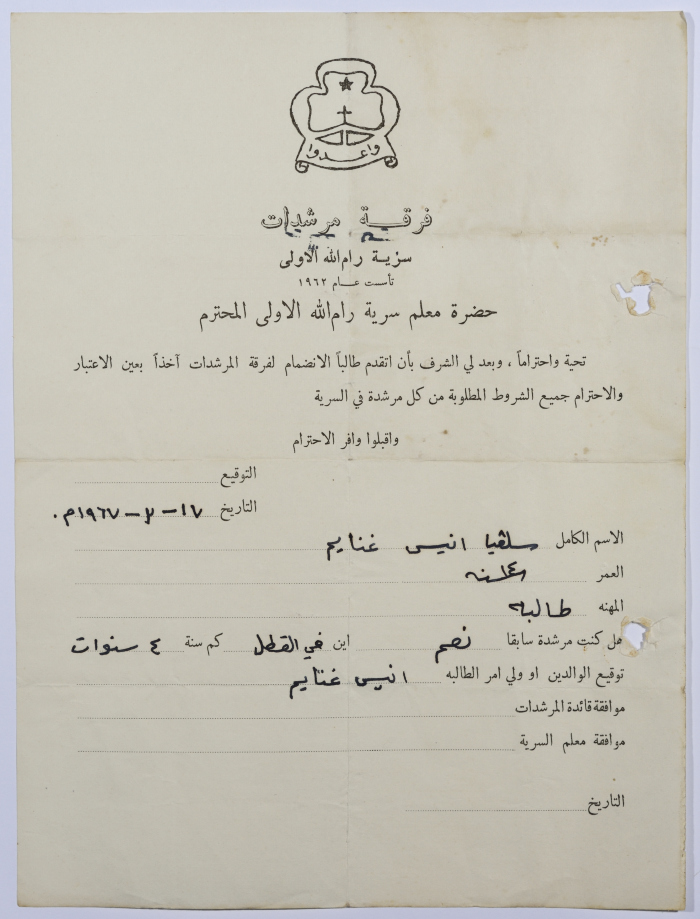 واعدوا
فرقة مرشدات
سرية رام الله الاولى
تأسست عام ١٩٦٢
حضرة معلم سرية رام الله الاولى المحترم
تحية واحتراماً ، وبعد لي الشرف بأن اتقدم طالباً الانضمام لفرقة المرشدات آخذاً بعين الاعتبار
والاحترام جميع الشروط المطلوبة من كل مرشدة في السرية
واقبلوا وافر الاحترام
التوقيع
التاريخ ١٧ - ٣ - ١٩٦٧م.
الاسم الكامل سلفيا انيس غنايم
العمر ١٤ سنه
المهنه طالبه
هل كنت مرشدة سابقا نعم اين في القطل كم سنة ٤ سنوات
توقيع الوالدين او ولي امر الطالبه انيس غنايم
موافقة قائدة المرشدات
موافقة معلم السرية
التاريخ